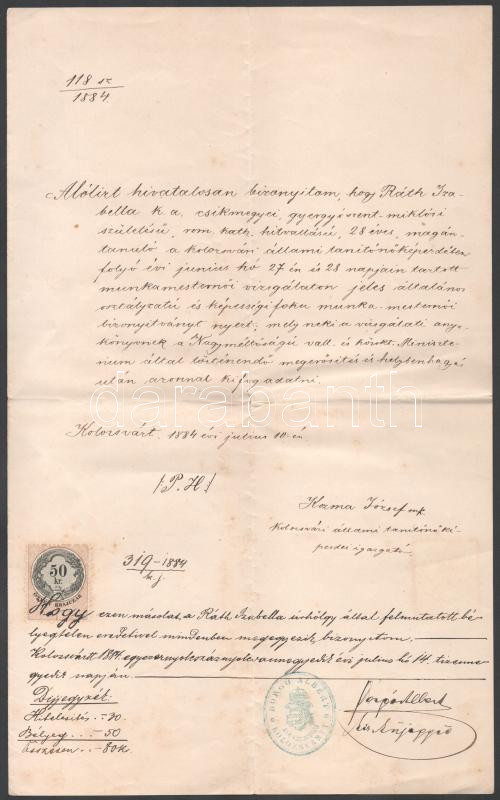 118 sz
1884.
Alólirt hivatalosan bizonyitom, hogy Ráth Iza-
bella k. a. csikmegyei, gyergyószent-miklósi
születésű, rom. kath. hitvallású, 28 éves, magán-
tanuló a kolozsvári állami tanitónőképerdében
folyó évi junius hó 27 én és 28 napjain tartott
munkamesternői vizsgálaton jeles általános
osztályzatú és képességi fokú munka-mesternői
bizonyitványt nyert, mely neki a vizsgálati any.
könyvnek a Nagyméltóságú vall. és közokt. Minister-
rium által történendő megerősités és helybenhagyás
után azonnal ki fog adatni.
darabanth
Kolozsvárt, 1884 évi julius 10-én
/P.H./
Kozma József mk.
kolozsvári állami tanitónőké-
perdei igazgató.
50
kr.
319-1884
Hogy ezen másolat a Ráth Izabella úrhölgy által felmutatott bé-
lyegtelen eredetivel mindenben megegyezik, bizonyitom.
Kolozsvárt 1884 egyezernyolczszáznyolczvannegyedik évi julius hó 14. tizenne-
gyedik napján.
Dijjegyzék:
Hitelesités .- 30.
Bélyeg . . .- 50
Összesen .- 80 kr.